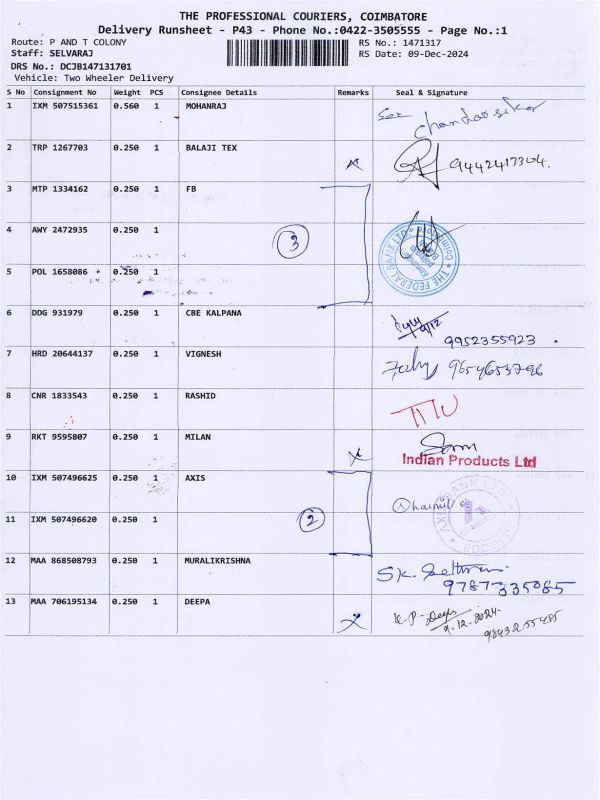 THE PROFESSIONAL COURIERS, COIMBATORE
Delivery Runsheet - P43 - Phone No.:0422-3505555 - Page No.:1
Route: P AND T COLONY RS No.: 1471317
Staff: SELVARAJ RS Date: 09-Dec-2024
DRS No.: DCJB147131701
Vehicle: Two Wheeler Delivery
S No Consignment No Weight PCS Consignee Details Remarks Seal & Signature
1 IXM 507515361 0.560 1 MOHANRAJ
Chandrasekar
2 TRP 1267703 0.250 1 BALAJI TEX
9442413304.
3 MTP 1334162 0.250 1 FB
4 AWY 2472935 0.250 1
3
THE FEDERAL BANK LTD
5 POL 1658086 0.250 1
6 DDG 931979 0.250 1 CBE KALPANA
9/12
9952355923
7 HRD 20644137 0.250 1 VIGNESH
9654653796
8 CNR 1833543 0.250 1 RASHID
9 RKT 9595807 0.250 1 MILAN
Indian Products Ltd
10 IXM 507496625 0.250 1 AXIS
AXIS BANK LTD
11 IXM 507496620 0.250 1
2
12 MAA 868508793 0.250 1 MURALIKRISHNA
SK.
9787335085
13 MAA 706195134 0.250 1 DEEPA
K.P. Deepa
9-12-2024
9843255485